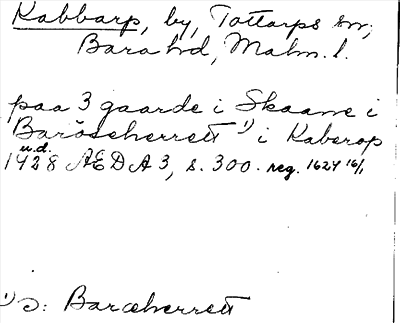 Kabbarp, by, Tottarps sn,
Bara hd, Malm. l.
paa 3 gaarde i Skaane i
Baröseherrett ¹) i Kaberop
u.d.
1428 ÆDA 3, s. 300. reg. 1624 16/1
¹) ɔ: Baraherrett